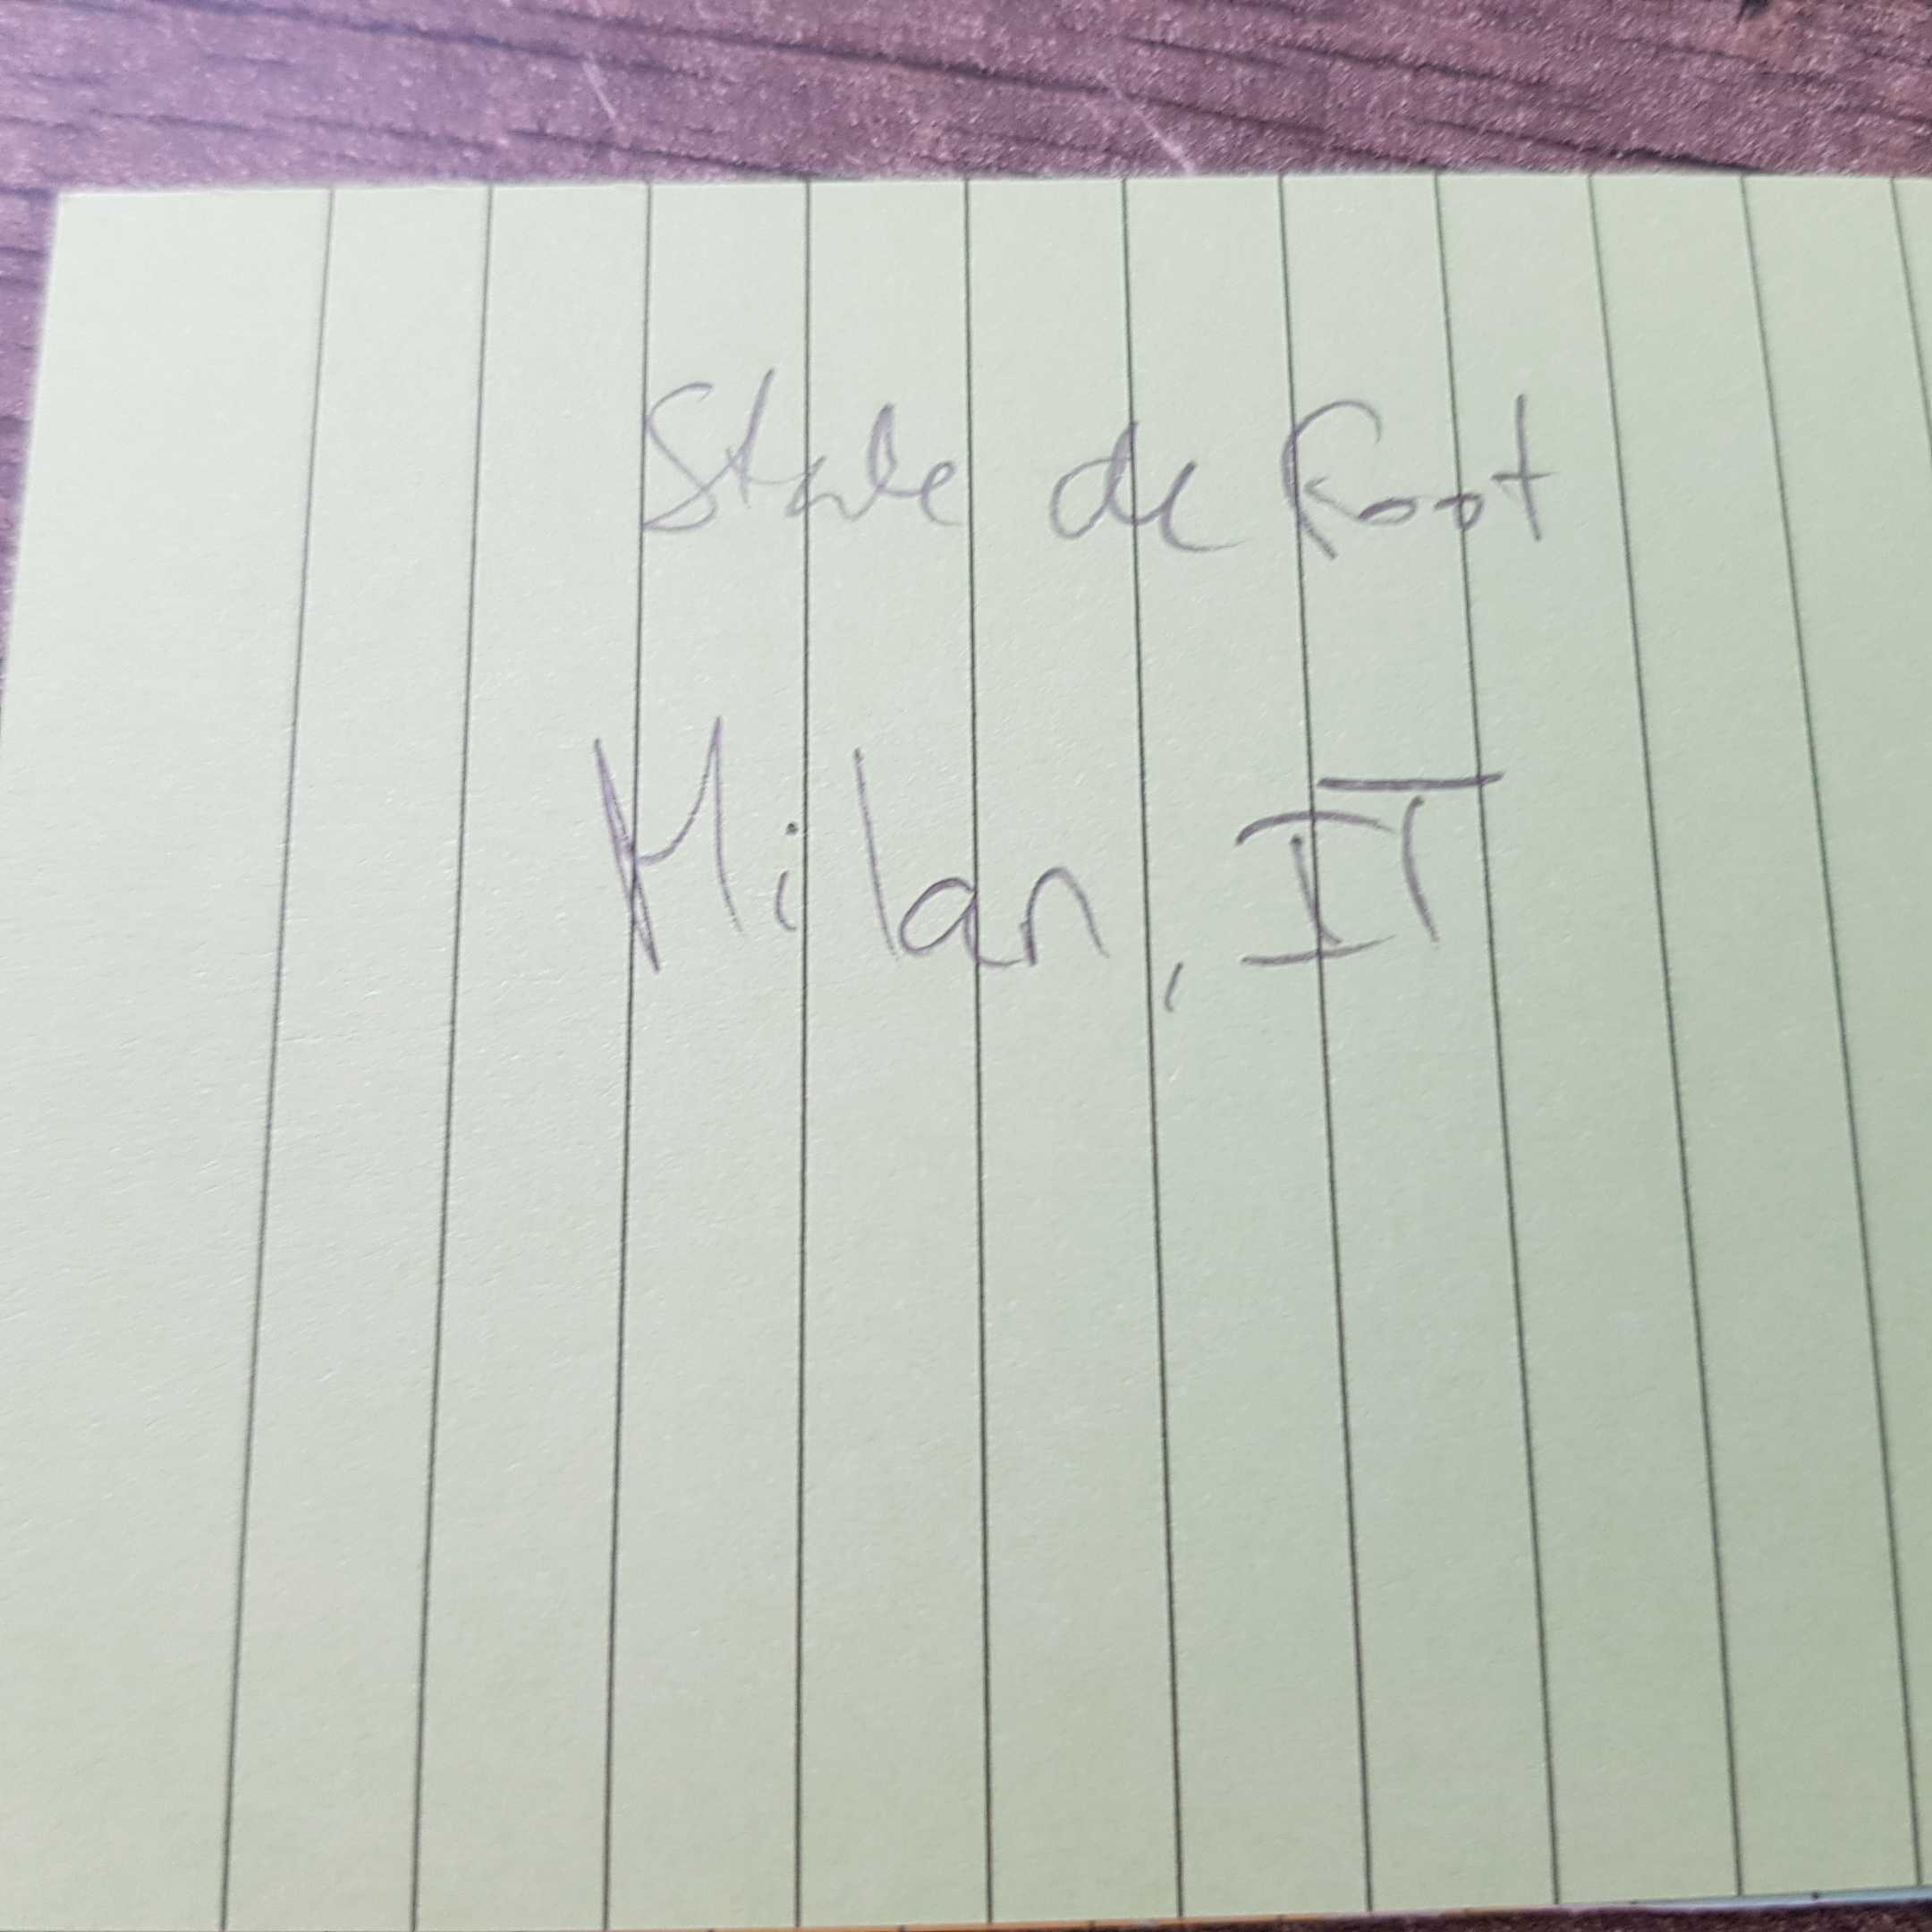 State de Root
Milan, IT